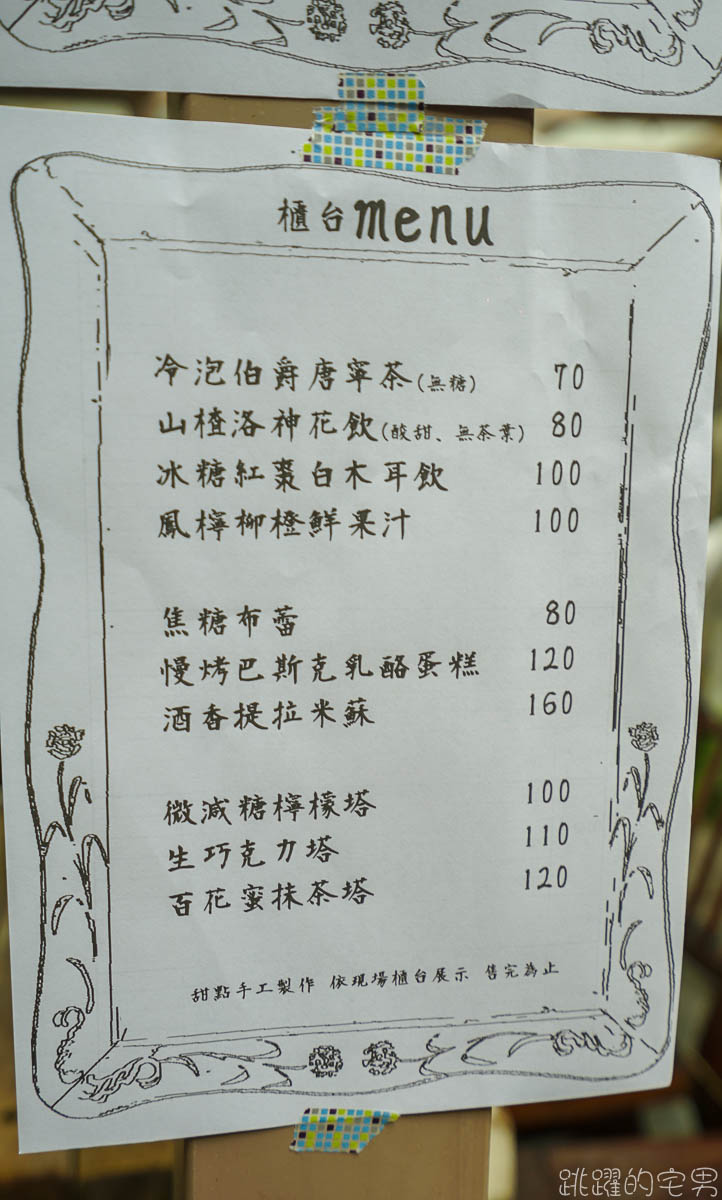 櫃台menu
冷泡伯爵唐寧茶(無糖) 70
山楂洛神花飲(酸甜、無茶葉) 80
冰糖紅棗白木耳飲 100
鳳檸柳橙鮮果汁 100
焦糖布蕾 80
慢烤巴斯克乳酪蛋糕 120
酒香提拉米蘇 160
微減糖檸檬塔 100
生巧克力塔 110
百花蜜抹茶塔 120
甜點手工製作 依現場櫃台展示 售完為止
跳躍的宅男